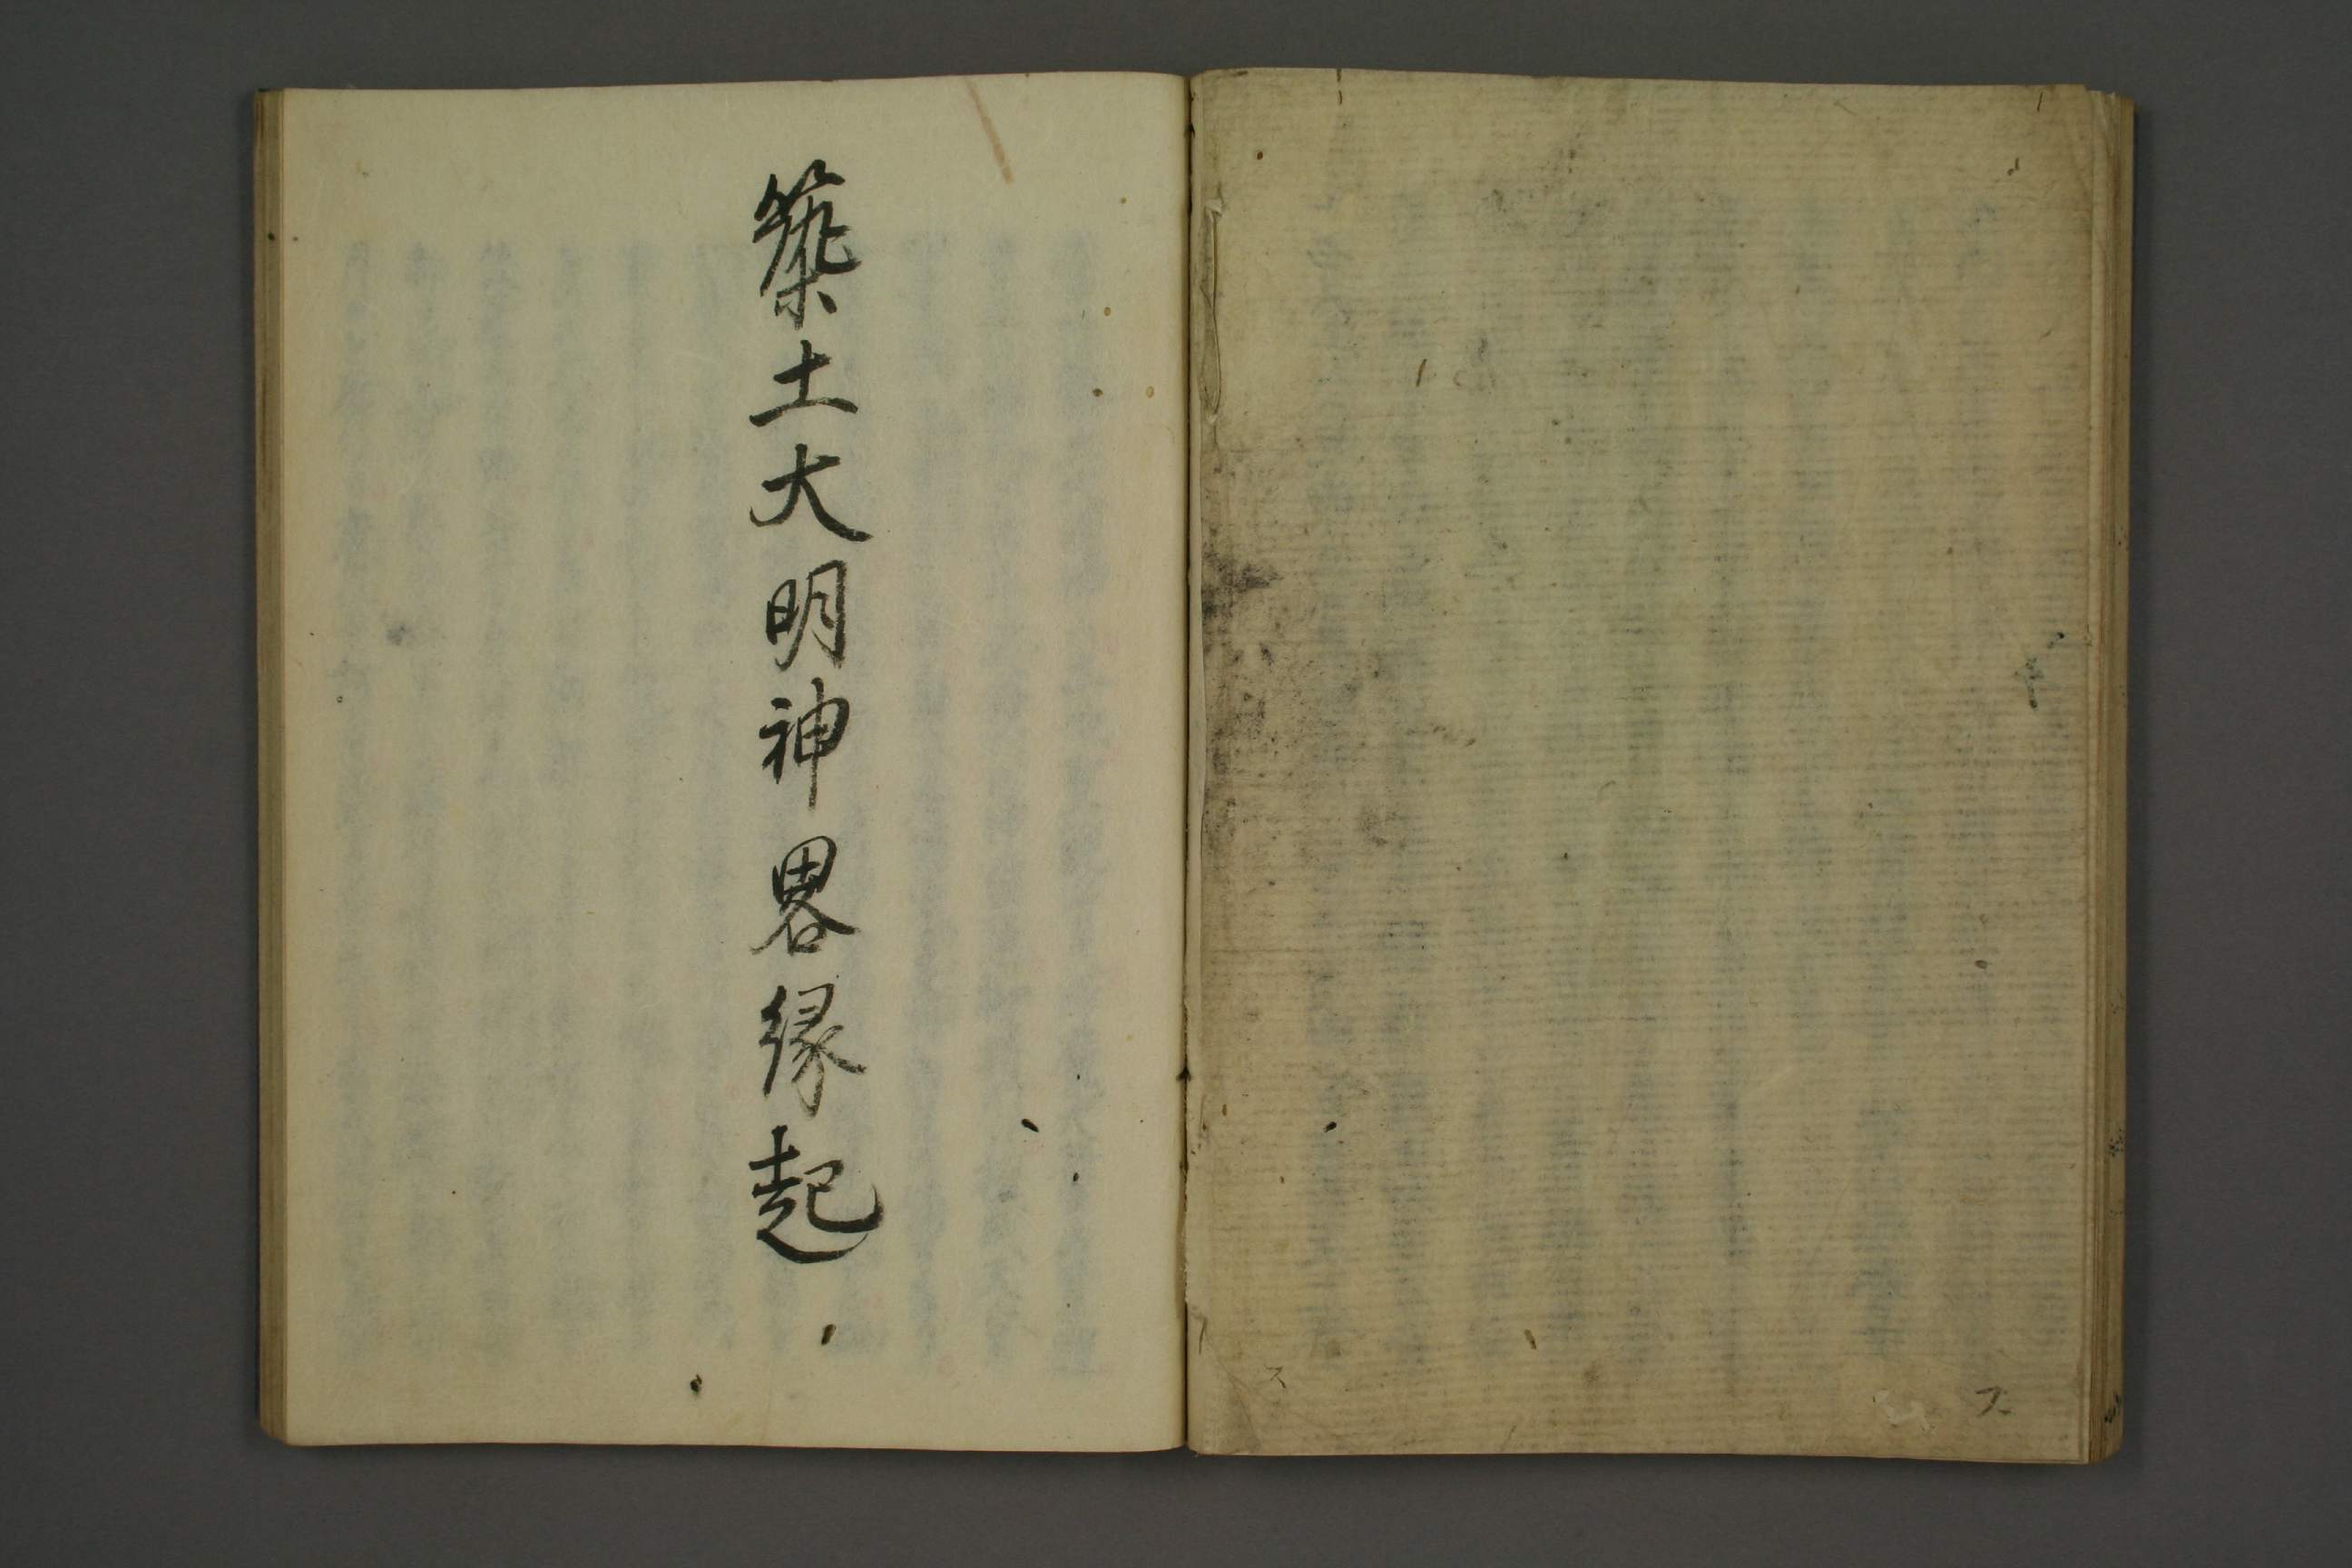 築土大明神畧縁起